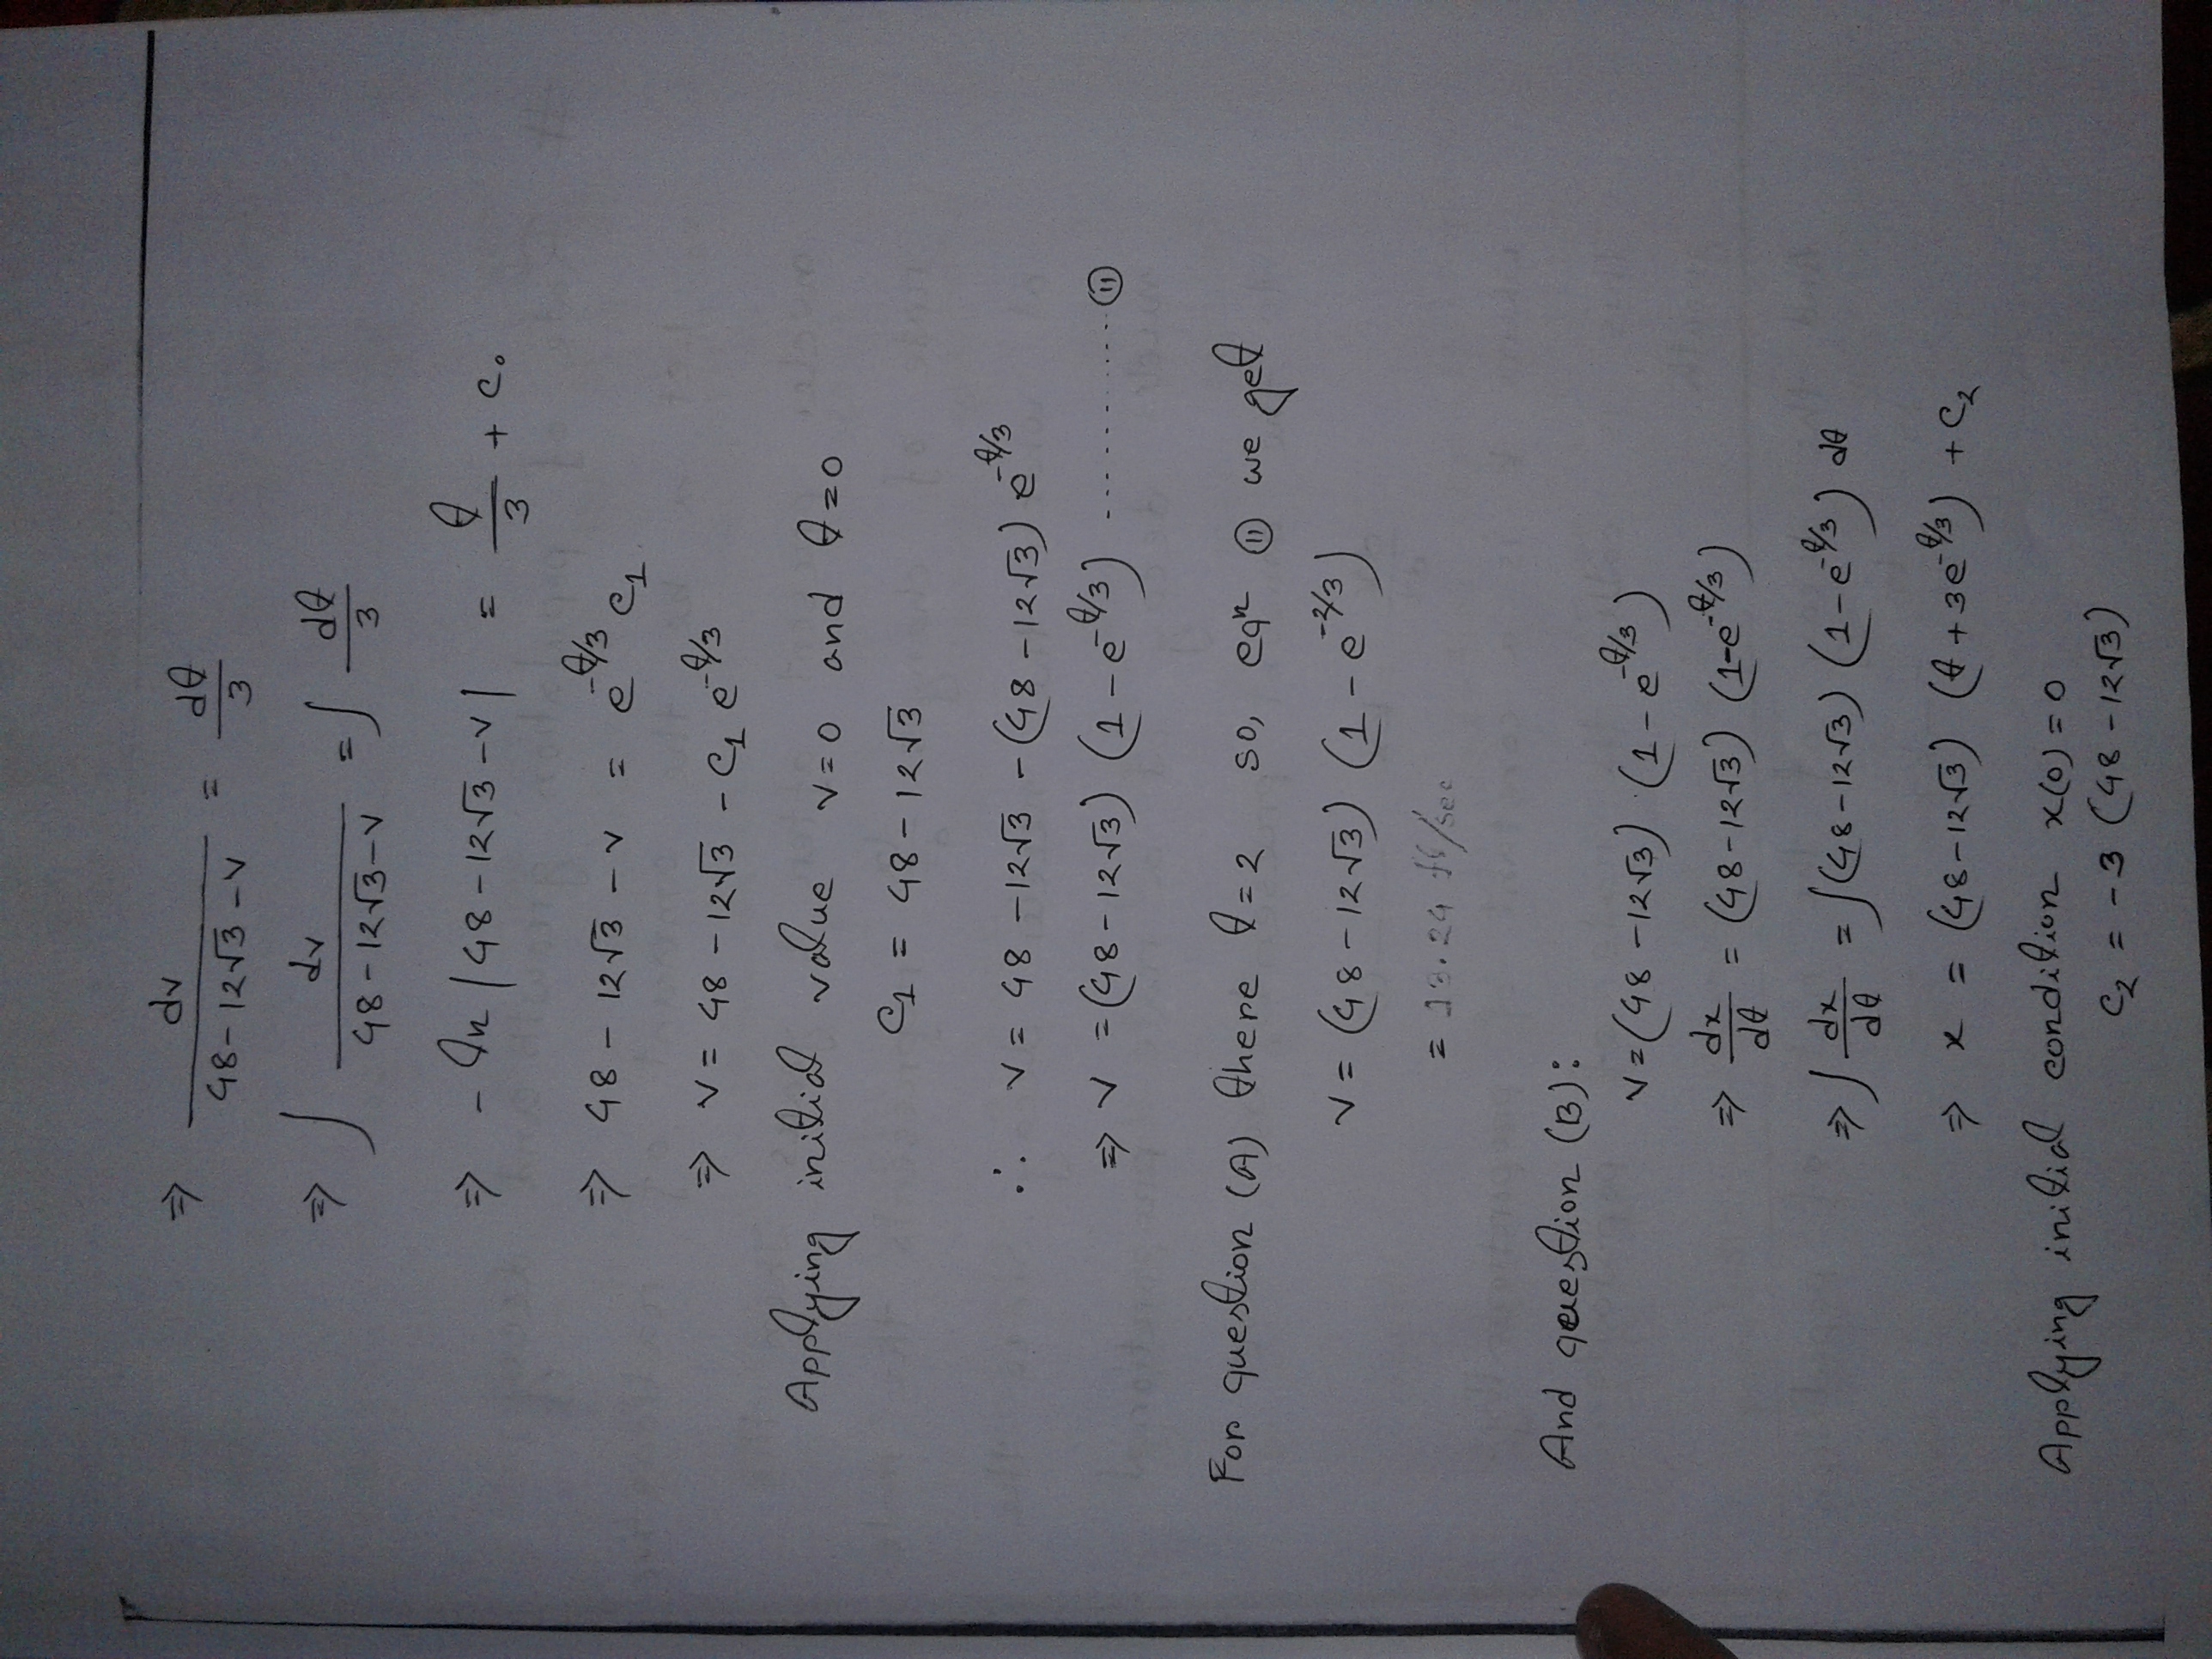 ⇒ dv / (48 - 12√3 - v) = dt / 3
⇒ ∫ dv / (48 - 12√3 - v) = ∫ dt / 3
⇒ - ln |48 - 12√3 - v| = t/3 + c₀
⇒ 48 - 12√3 - v = e^(-t/3) c₁
⇒ v = 48 - 12√3 - c₁ e^(-t/3)
Applying initial value v=0 and t=0
c₁ = 48 - 12√3
∴ v = 48 - 12√3 - (48 - 12√3) e^(-t/3)
⇒ v = (48 - 12√3) (1 - e^(-t/3)) ............ (11)
For question (A) there t=2 so, eqⁿ (11) we get
v = (48 - 12√3) (1 - e^(-2/3))
= 13.24 ft/sec
And question (B):
v = (48 - 12√3) (1 - e^(-t/3))
⇒ dx/dt = (48 - 12√3) (1 - e^(-t/3))
⇒ ∫ dx/dt = ∫ (48 - 12√3) (1 - e^(-t/3)) dt
⇒ x = (48 - 12√3) (t + 3e^(-t/3)) + c₂
Applying initial condition x(0) = 0
c₂ = -3 (48 - 12√3)